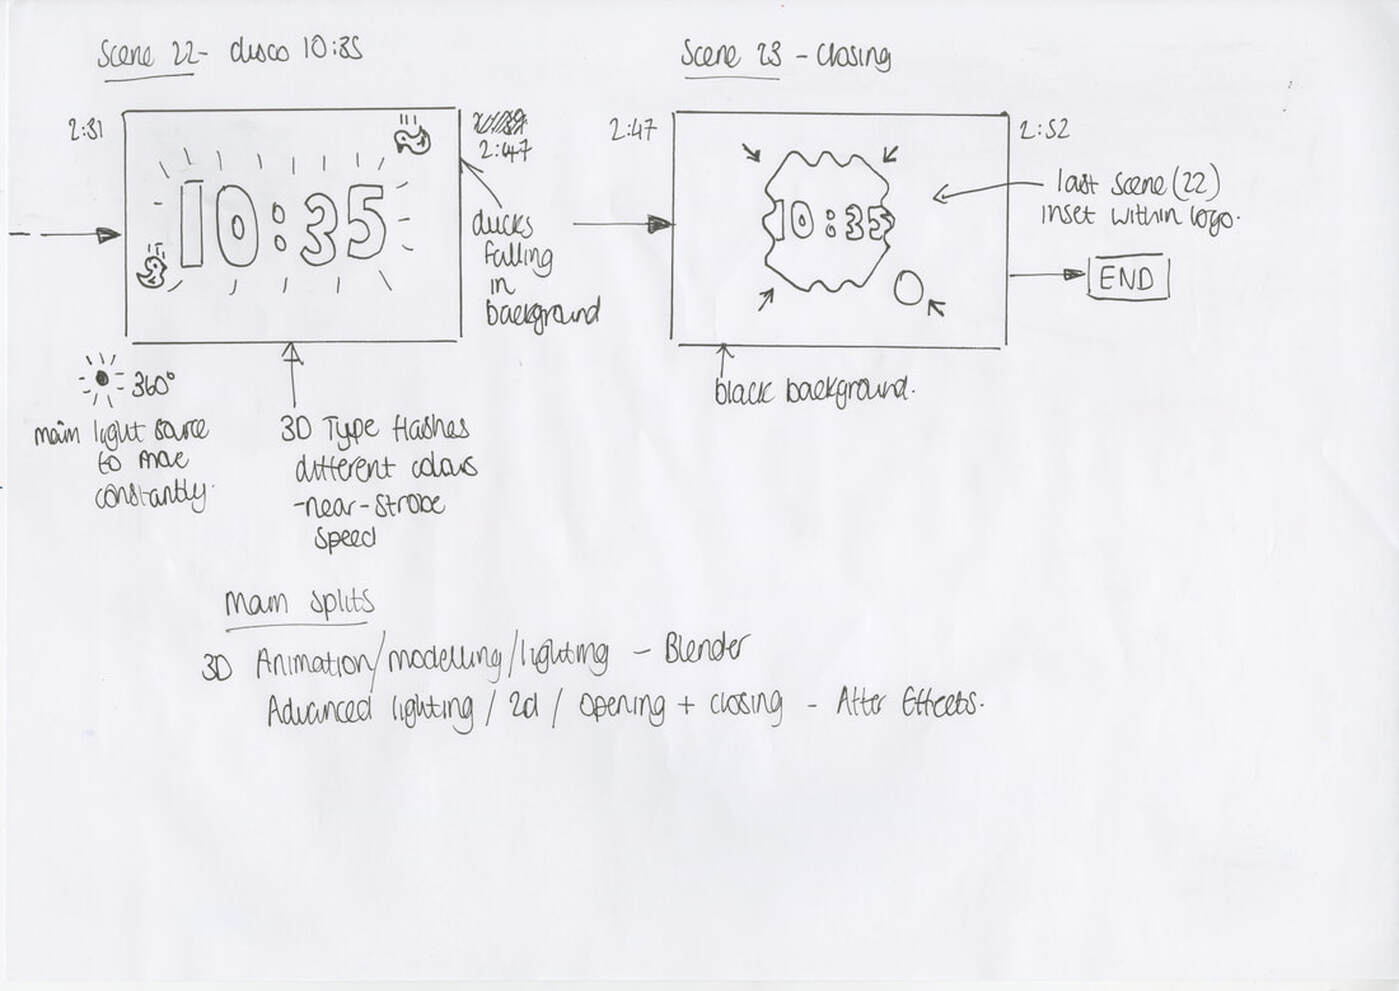 Scene 22- disco 10:35
2:31
2:47
10:35
ducks
falling
in
background
360°
main light source
to move
constantly.
3D Type flashes
different colours
-near-strobe
speed
Scene 23 - Closing
2:47
2:52
10:35
last scene (22)
inset within logo.
END
black background.
Main splits
3D Animation/modelling/lighting - Blender
Advanced lighting / 2d / opening + closing - After Effects.